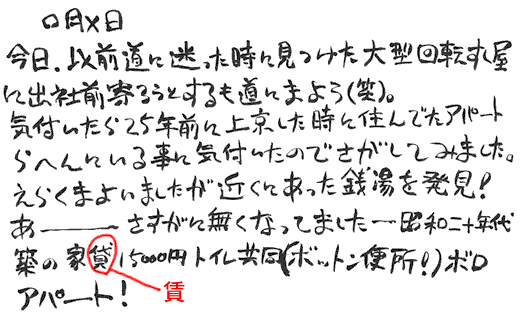 〇月×日
今日、以前道に迷った時に見つけた大型回転すし屋
に出社前寄ろうとするも道にまよう(笑)。
気付いたら25年前に上京した時に住んでたアパート
らへんにいる事に気付いたのでさがしてみました。
えらくまよいましたが近くにあった銭湯を発見!
あ――――さすがに無くなってました…昭和二十年代
築の家貸15000円トイレ共同(ボットン便所!)ボロ
賃
アパート!